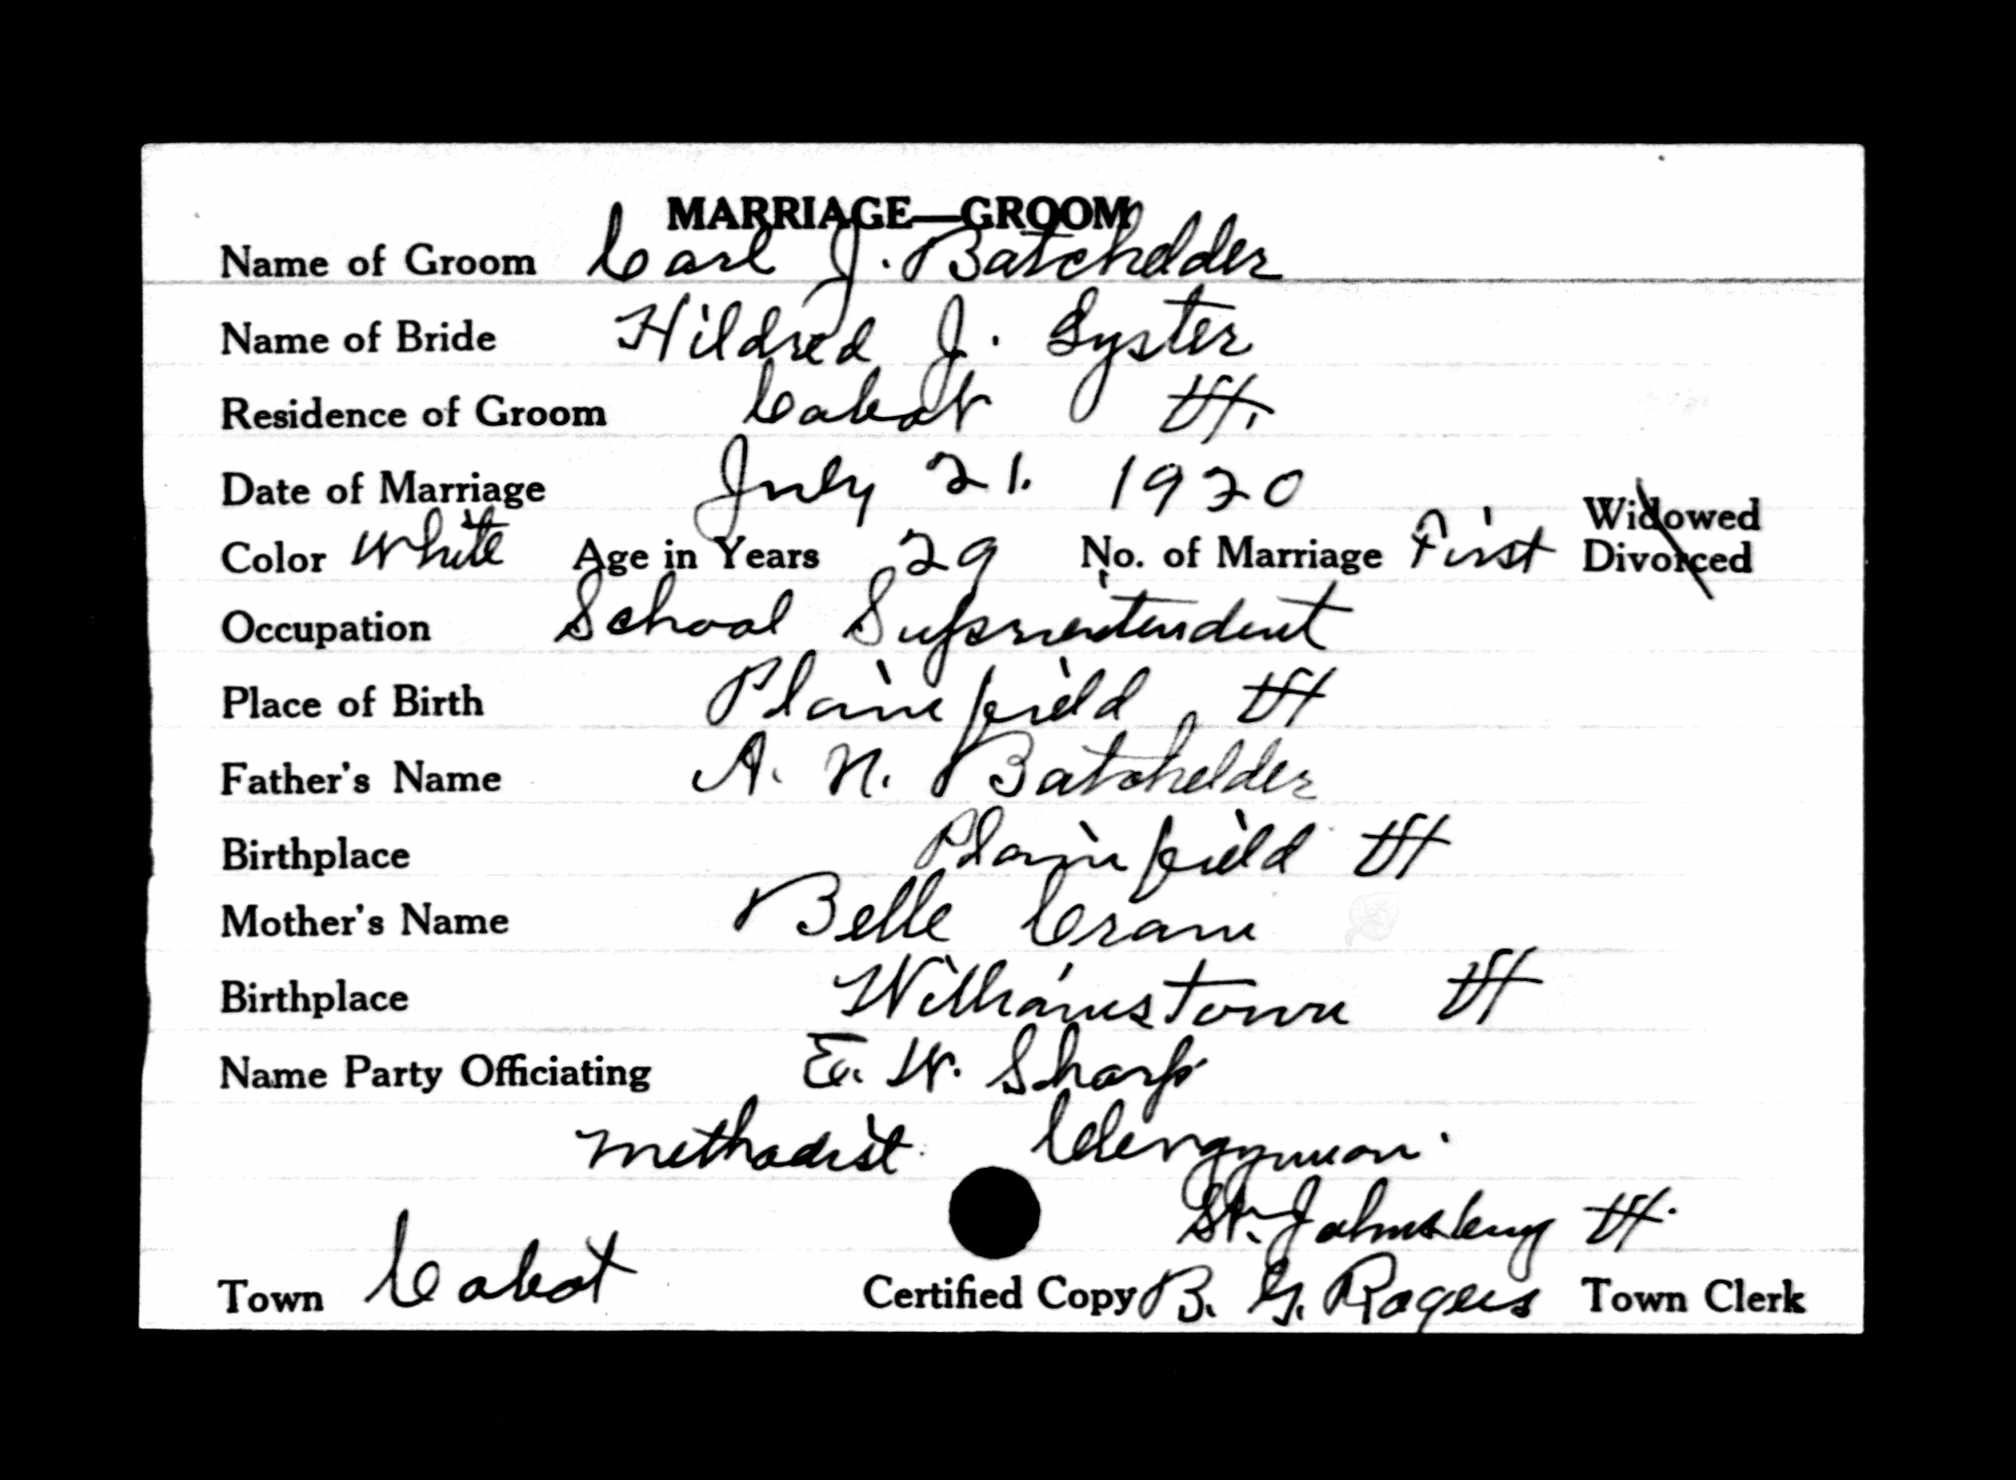 MARRIAGE—GROOM
Name of Groom Carl J. Batchelder
Name of Bride Hildred J. Lyster
Residence of Groom Cabot Vt.
Date of Marriage July 21. 1920
Widowed
Color White Age in Years 29 No. of Marriage First Divorced
Occupation School Superintendent
Place of Birth Plainfield Vt
Father's Name A. N. Batchelder
Birthplace Plainfield Vt
Mother's Name Belle Crane
Birthplace Williamstown Vt
Name Party Officiating E. W. Sharp
Methodist Clergyman.
St. Johnsbury Vt.
Town Cabot Certified Copy B. G. Rogers Town Clerk